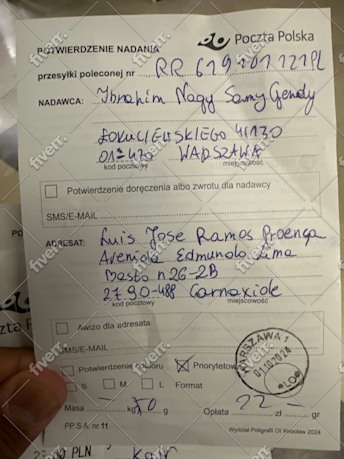 Poczta Polska
POTWIERDZENIE NADANIA
przesyłki poleconej nr RR 619101121PL
NADAWCA: Ibrahim Nagy Samy Gendy
41130
01-470 WARSZAWA
kod pocztowy miejscowość
Potwierdzenie doręczenia albo zwrotu dla nadawcy
SMS/E-MAIL
ADRESAT: Luis Jose Ramos Proença
Avenida Edmundo Lima
Basto n26-2B
2790-488 Carnaxide
kod pocztowy miejscowość
Awizo dla adresata
SMS/E-MAIL
Potwierdzenie odbioru Priorytetowa
S M L Format
Masa kg 50 g Opłata 22 - zł gr
PP S.A. nr 11 Wydział Poligrafii OI Wrocław 2024
WARSZAWA 1
PO
Poczta
PLN
fiverr.